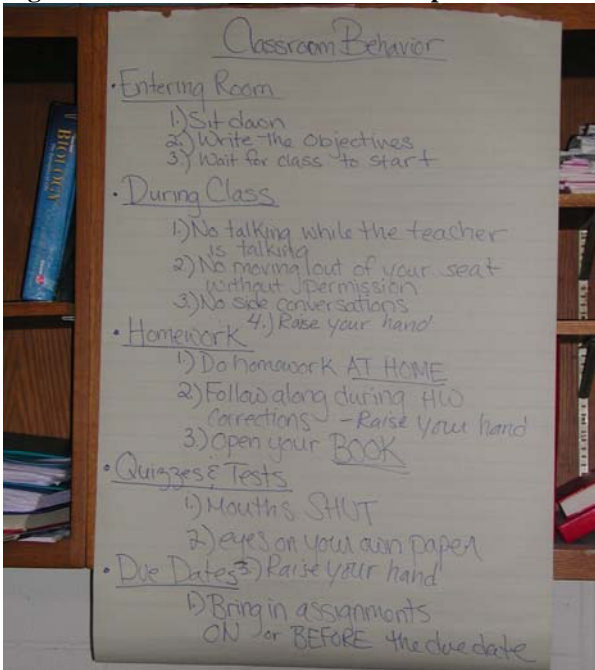 Classroom Behavior
• Entering Room
1.) Sit down
2.) Write the Objectives
3.) Wait for class to start
• During Class
1.) No talking while the teacher
is talking
2.) No moving out of your seat
without permission
3.) No side conversations
4.) Raise your hand
• Homework
1.) Do homework AT HOME
2.) Follow along during HW
Corrections - Raise your hand
3.) Open your BOOK
• Quizzes & Tests
1.) Mouths SHUT
2.) eyes on your own paper
3.) Raise your hand
• Due Dates
1.) Bring in assignments
ON or BEFORE the due date
BIOLOGY